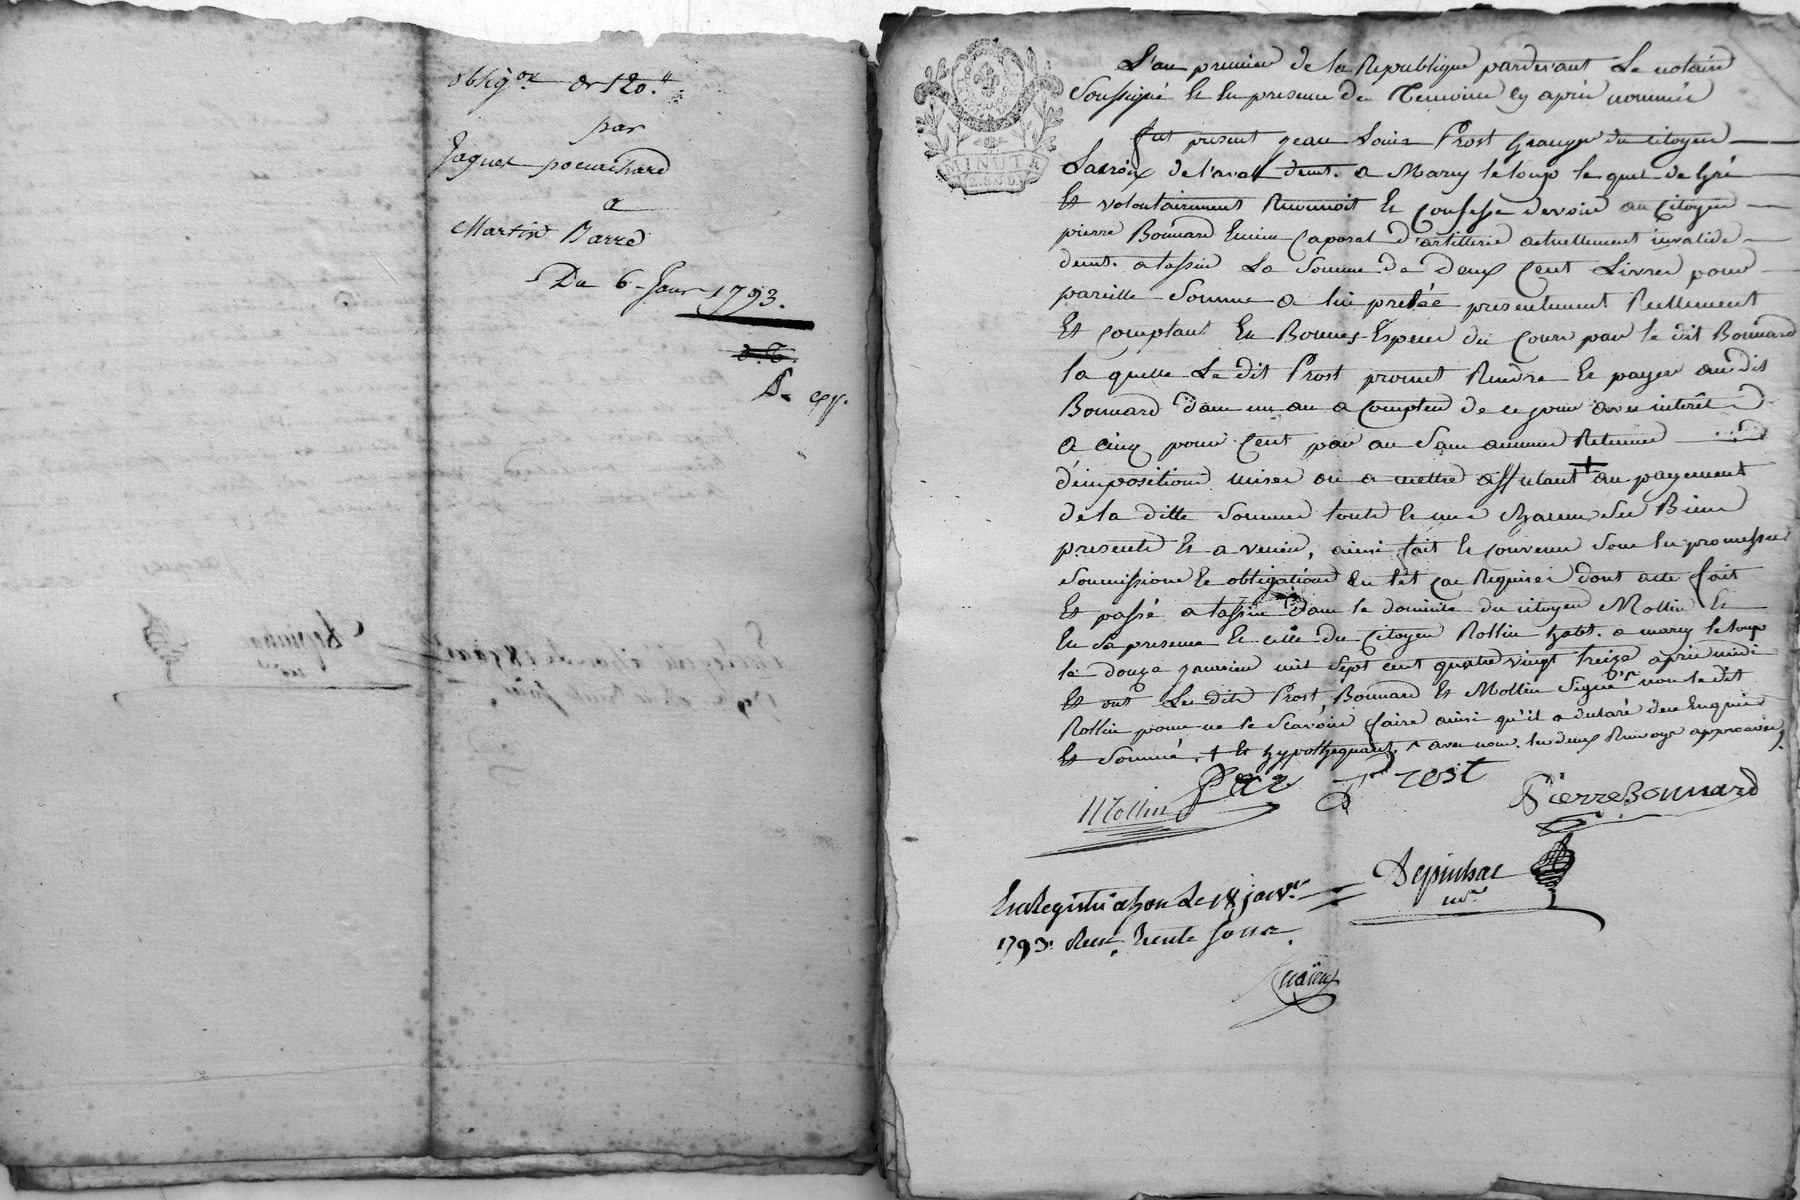 obligon de 120.#
par
Jaques
a
Martin Barré
Du 6 Janr 1793.
MINUTE
L'an premier de la Republique pardevant Le notaire
Soussigné Et En presence des Temoins cy après nommés
fut present jean Louis Prost Granger du citoyen
Lacroix de l'aval demt. a Marcy le loup le quel de Gré
Et volontairement Reconnoit Et Confesse devoir au Citoyen
pierre Bonnard Encien Caporal d'artillerie actuellement invalide
demt. a lassin La Somme de Deux Cent Livres pour
pareille Somme a lui pretée presentement Reellement
Et Comptant En Bonnes Espece du Cours par le dit Bonnard
la quelle Le dit Prost promet Rendre Et payer au dit
Bonnard dans un an a Compter de ce jour avec interêt
a cinq pour Cent par an Sans aucunes Retenues
d'impositions mises ou a mettre affectant + au payement
de la ditte Somme touts Et un Chacuns Ses Biens
presents Et a venirs, ainsi fait Et Convenu Sous les promesses
Soumissions Et obligations En tel cas Requises dont acte fait
Et passé a lassin Dans le domicile du citoyen Mollin Et
En Sa presence Et celle du Citoyen Rollin habt. a marcy le loup
le douze janvier mil Sept cent quatre vingt treize après midi
Et ont Les dits Prost, Bonnard Et Mollin Signé non le dit
Rollin pour ne le Scavoir faire ainsi qu'il a declaré de ce Enquis
Et Sommé. + Et hypothequant. avec nous. les deux Renvoys approuvés
Mollin Prost Pierre Bonnard
Depinhac
nore
Enregistré a lyon Le 18 janvr.
1793. Recu trente Sous.